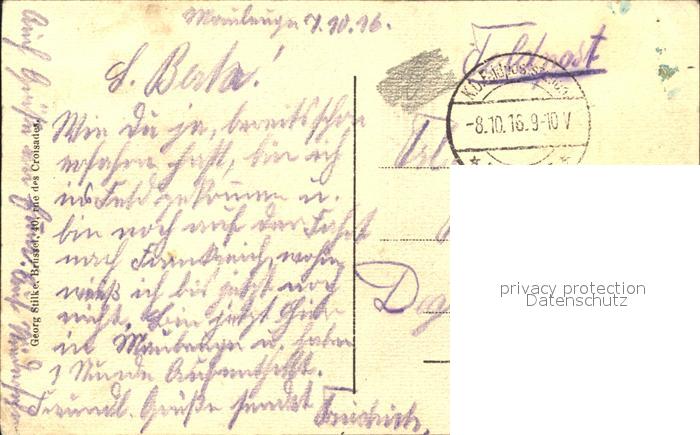 Maubeuge 7.10.16.
L. Berta!
Wie Du ja, bereits schon
erfahren hast, bin ich
ins Feld gekommen u.
bin noch auf der Fahrt
nach Frankreich, wohin
weiß ich bis jetzt noch
nicht. Bin jetzt hier
in Maubeuge u. habe
1 Stunde Aufenthalt.
Freundl. Grüße sendet
Friedrich.
Feldpost
-8.10.16.9-10 V
Georg Stilke, Brüssel, 40, rue des Croisades.
privacy protection
Datenschutz